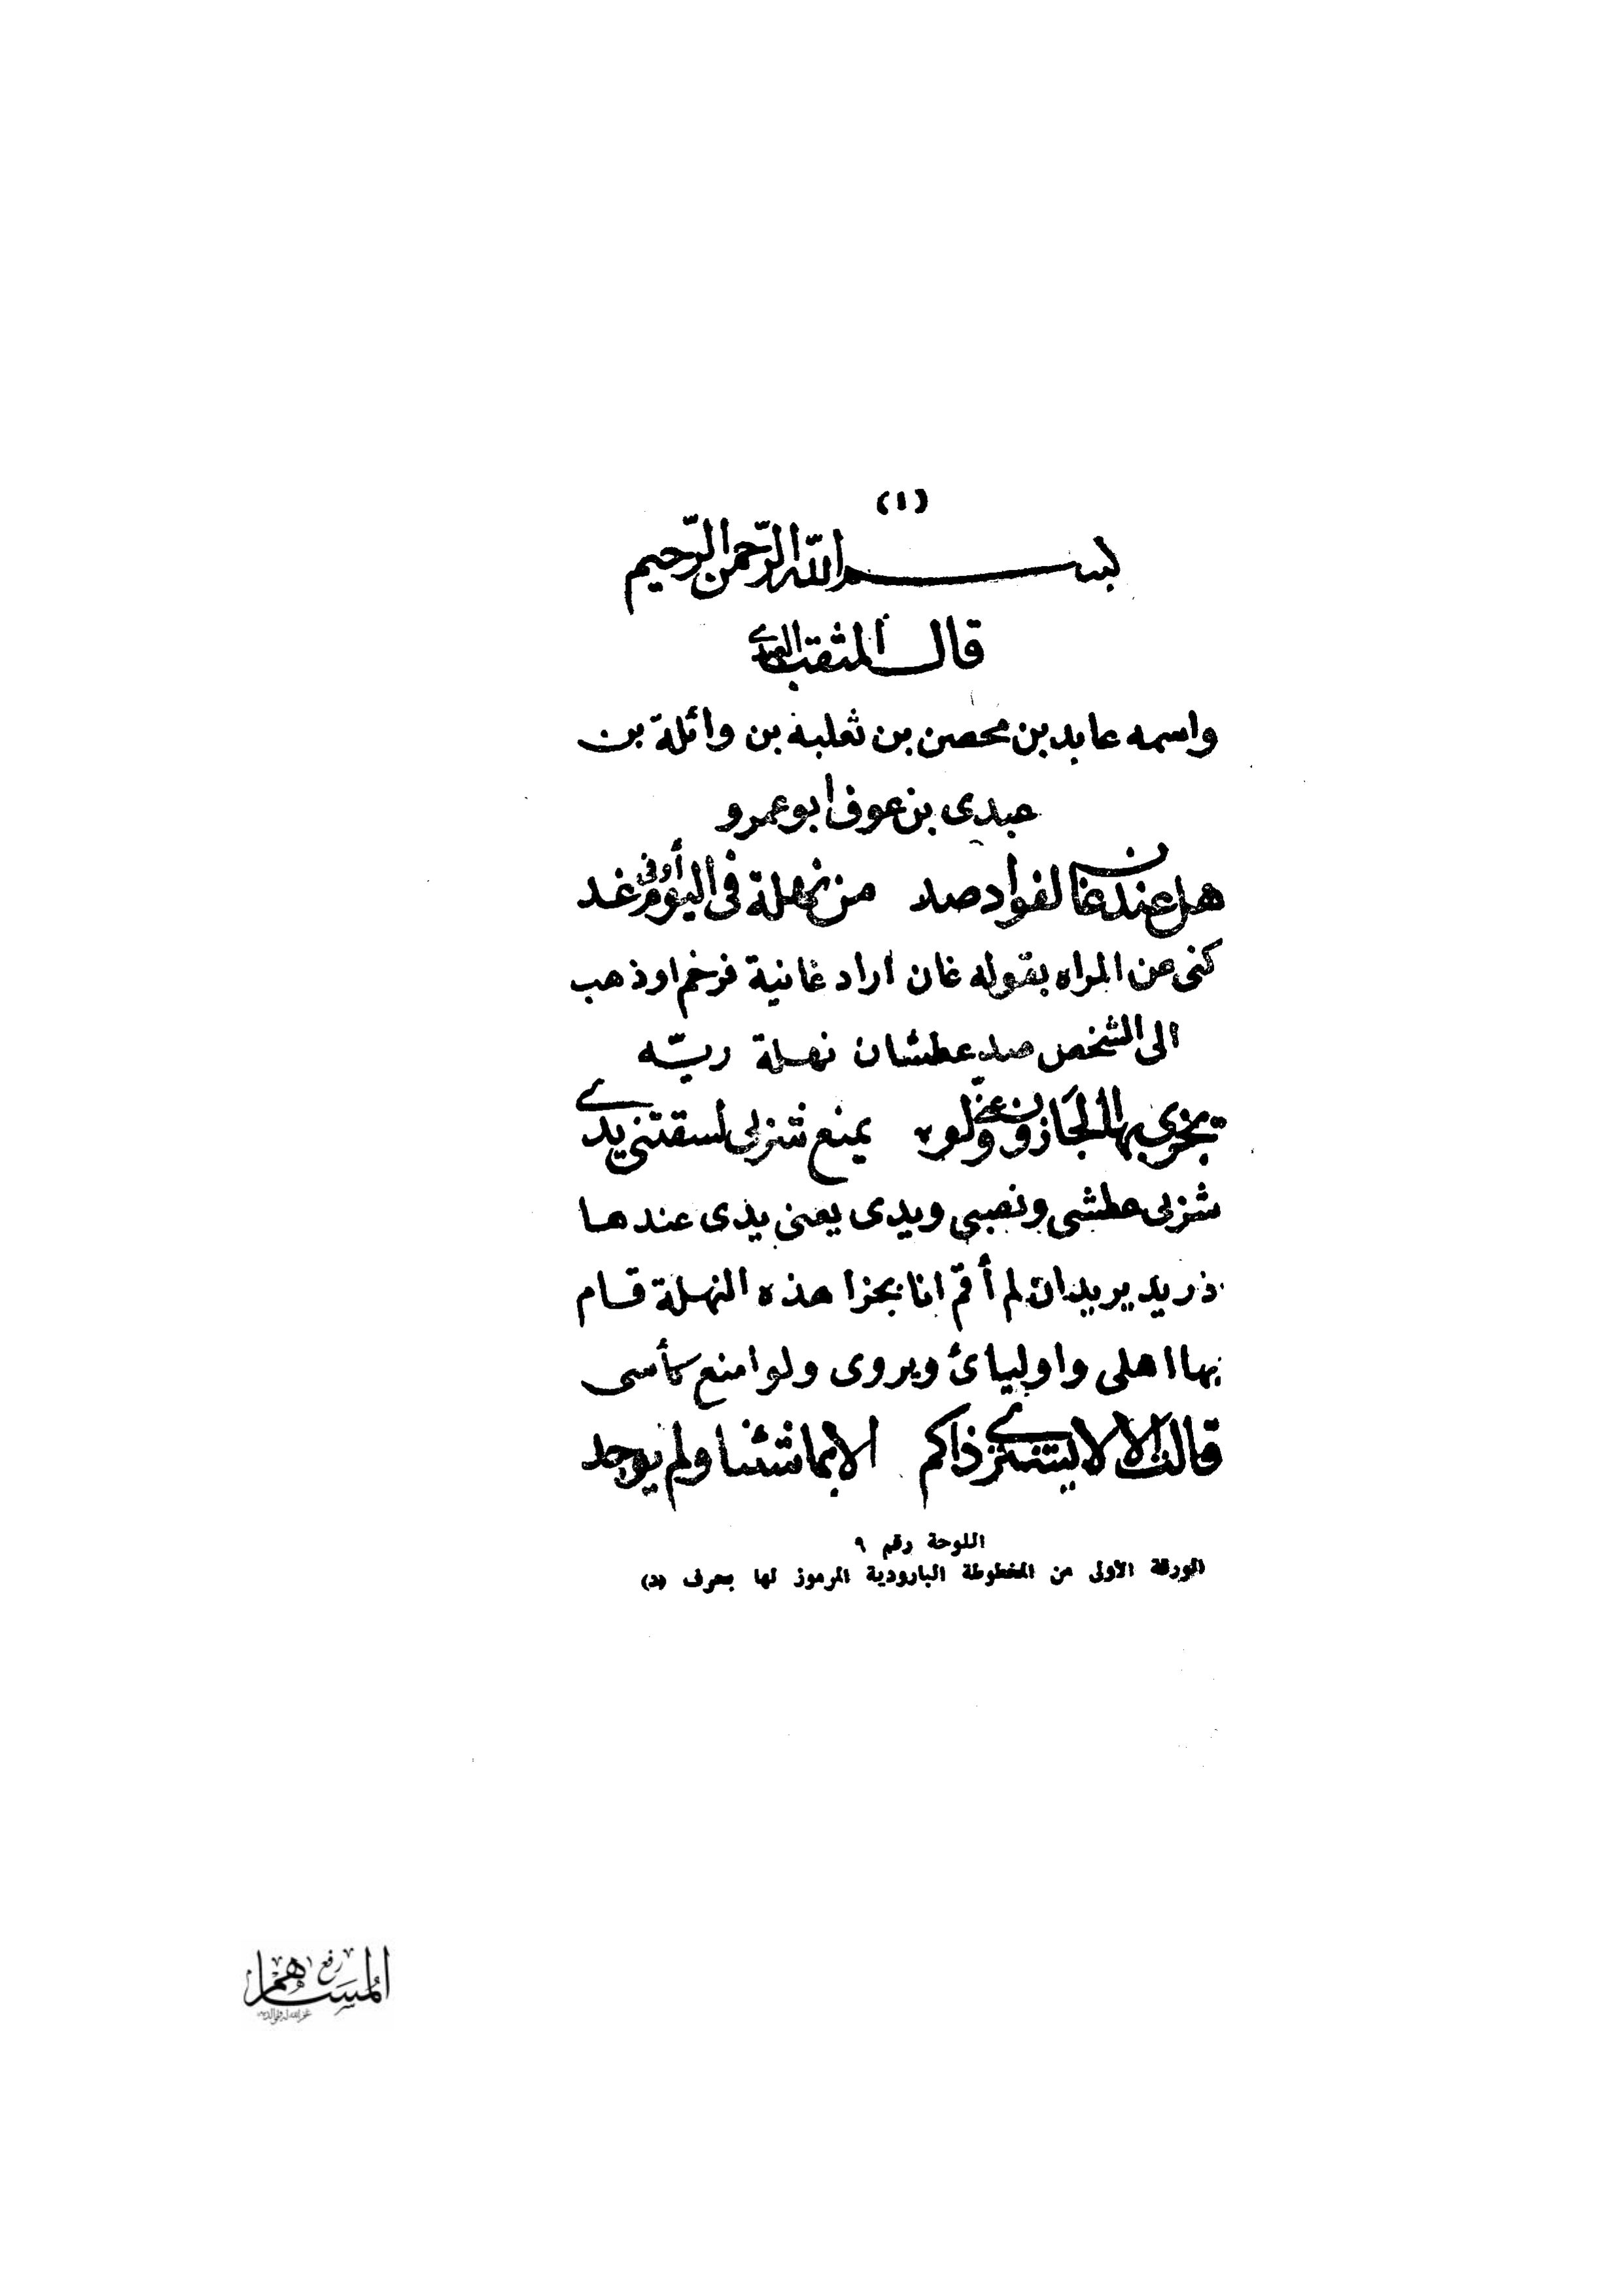 (١)
بسم الله الرحمن الرحيم
قال المثقب العبدي
واسمه عابد بن محصن بن ثعلبة بن وائلة بن
عبدى بن عوف ابو عمرو
هل عند غان لفواد صد من نهلة فى اليوم أوفى غد
كنى عن المراه بقوله غان اراد غانية فرخم او ذهب
الى الشخص صد عطشان نهلة ريّه
يجزى بها الجازون عنّى ولو يمنع شزبى لسقتنى يدي
شزبى عطشى ونصبى ويدى يعنى يدى عندها
ذريد يريد ان لم أقم انا بجزا هذه النهلة قام
بها اهلى واوليائ ويروى ولو امنع كأسى
قالت الا لا يشترى ذاكم الا بما شئنا ولم يوجد
اللوحة رقم ٩
الورقة الأولى من المخطوطة البارودية المرموز لها بحرف (د)
رفع
المساهم
غفر الله له ولوالديه